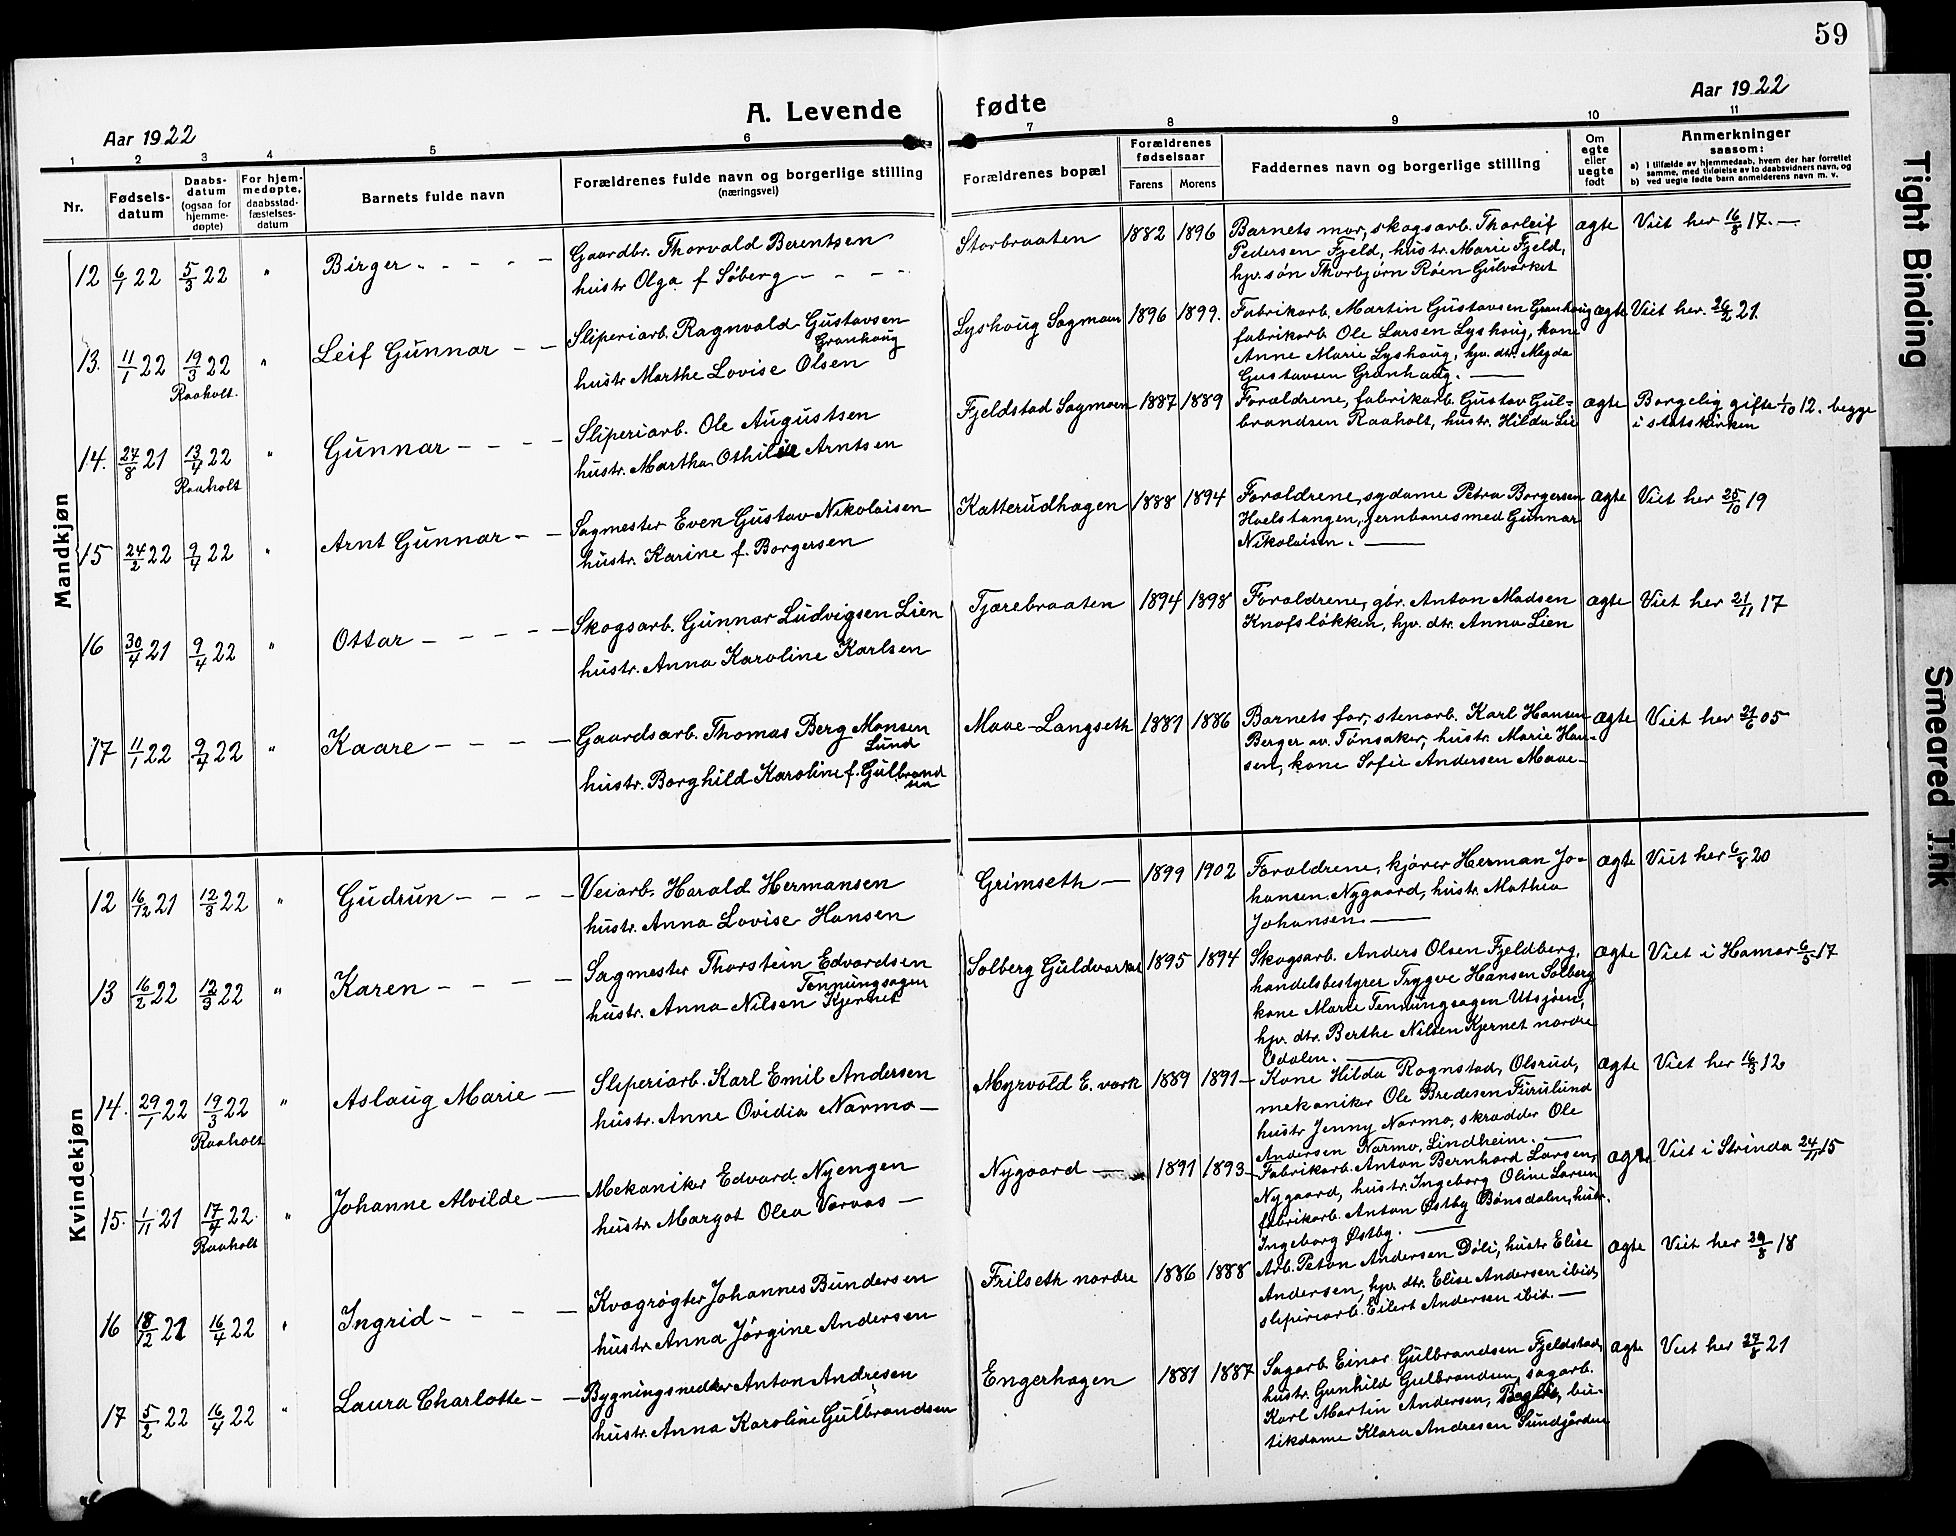 59
A. Levende fødte
Aar 1922
Aar 1922
1 2 3 4 5 6 7 8 9 10 11
Nr.
Fødsels-
datum
Daabs-
datum
(ogsaa for
hjemme-
døpte)
For hjem-
medøpte,
daabsstad-
fæstelses-
datum
Barnets fulde navn
Forældrenes fulde navn og borgerlige stilling
(næringsvei)
Forældrenes bopæl
Forældrenes
fødselsaar
Farens Morens
Faddernes navn og borgerlige stilling
Om
egte
eller
uegte
født
Anmerkninger
saasom:
a) I tilfælde av hjemmedaab, hvem der har forrettet
samme, med tilføielse av to daabsvidners navn, og
b) ved uegte fødte barn anmelderens navn m. v.
Mandkjøn
12 6/1 22 5/3 22 " Birger - - - - -
Gaardbr. Thorvald Berentsen
hustr. Olga f Søberg - - - -
Storbraaten 1882 1896
Barnets mor, skogsarb. Thorleif
Pedersen Fjeld, hustr. Marie Fjeld,
hjv. søn Thorbjørn Røen Gulværket
ægte Viet her 16/8 17. —
13. 11/1 22 19/3 22 " Leif Gunnar - -
Raaholt.
Sliperiarb. Ragnvald Gustavsen
Granhaug
hustr Marthe Lovise Olsen
Lyshoug Sagmoen 1896 1899.
Fabrikarb. Martin Gustavsen Granhoug
fabrikarb Ole Larsen Lyshoug, kone
Anne Marie Lyshoug, hjv. dtr. Magda
Gustavsen Granhaug. —
ægte Viet her. 26/2 21.
14. 27/8 21 13/4 22 " Gunnar - - - -
Raaholt
Sliperiarb. Ole Augustsen
hustr. Martha Othilie Arntsen
Fjeldstad Sagmoen 1887 1889
Forældrene, fabrikarb. Gustav Gul-
brandsen Raaholt, hustr. Hilda Lie
ægte Borgelig gifte 1/10 12. begge
i statskirken
15 24/2 22 9/4 22 " Arnt Gunnar - -
Sagmester Even Gustav Nikolaisen
hustr. Karine f. Borgersen
Katterudhagen 1888 1894
Forældrene, sydame Petra Borgersen
Hoelstangen, jernbanesmed Gunnar
Nikolaisen. —
ægte Viet her 25/10 19
16 30/4 21 9/4 22 " Ottar - - - - -
Skogsarb. Gunnar Ludvigsen Lien
hustr. Anna Karoline Karlsen
Tjærebraaten 1894 1898
Forældrene, gbr. Anton Madsen
Knofsløkken, hjv. dtr. Anna Lien
ægte Viet her 21/11 17
17 11/1 22 9/4 22 " Kaare - - - -
Gaardsarb. Thomas Berg Monsen
Lund
hustr. Borghild Karoline f. Gulbrand
sen
Maae-Langseth 1881 1886
Barnets far, stenarb. Karl Hansen
Berger av. Tønsaker, hustr. Marie Han-
sen, kone Sofie Andersen Maae-
ægte Viet her 21/6 05
Kvindekjøn
12 16/12 21 12/3 22 " Gudrun - - - -
Veiarb. Harald Hermansen
hustr. Anna Lovise Hansen
Grimseth — 1899 1902
Forældrene, kjører Herman Jo-
hansen Nygaard, hustr. Mathea
Johansen. —
ægte Viet her 6/8 20
13 16/2 22 12/3 22 " Karen - - - - -
Sagmester Thorstein Edvardsen
Tennungsagen
hustr. Anna Nilsen Kjernet
Solberg Guldværket 1895 1894
Skogsarb. Anders Olsen Fjeldberg,
handelsbestyrer Trygve Hansen Solberg
kone Marie Tennungsagen Utsjøen,
hjv. dtr. Berthe Nilsen Kjernet nordre
Odalen. —
ægte Viet i Hamar 6/5 17
14. 29/1 22 19/3 22 " Aslaug Marie —
Raaholt
Sliperiarb. Karl Emil Andersen
hustr. Anne Ovidia Narmo —
Myrvold E. værk 1889 1891 -
Kone Hilda Rognstad, Olsrud,
mekaniker Ole Bredesen Furulund
hustr Jenny Narmo, skrædder Ole
Andersen Narmo, Lindheim. —
ægte Viet her 16/3 12
15. 1/11 21 17/4 22. " Johanne Alvilde —
Raaholt
Mekaniker Edvard Nyengen
hustr Margot Olea Vorvas —
Nygaard — 1891 1893 -
Fabrikarb. Anton Bernhard Larsen,
Nygaard, hustr. Ingeborg Oline Larsen
fabrikarb. Anton Østby Bønsdalen, hustr.
Ingeborg Østby. —
ægte Viet i Strinda 24/11 15
16 18/12 21 16/4 22 " Ingrid - - - -
Kvægrøgter Johannes Bundersen
hustr. Anna Jørgine Andersen
Frilseth nordre 1886 1888
Arb. Peton Andersen Døli, hustr Elise
Andersen, hjv. dtr. Elise Andersen ibid,
sliperiarb. Eilert Andersen ibid. —
ægte Viet her 29/8 18
17 5/2 22 16/4 22 " Laura Charlotte -
Bygningsnedker Anton Andresen
hustr. Anna Karoline Gulbrandsen
Engerhagen 1881 1887
Sagarb Einar Gulbrandsen Fjeldstad,
hustr. Gunhild Gulbrandsen, sagarb.
Karl Martin Andersen, bu-
tikdame Klara Andresen Sundjorden
ægte Viet her 27/8 21
Tight Binding
Smeared Ink